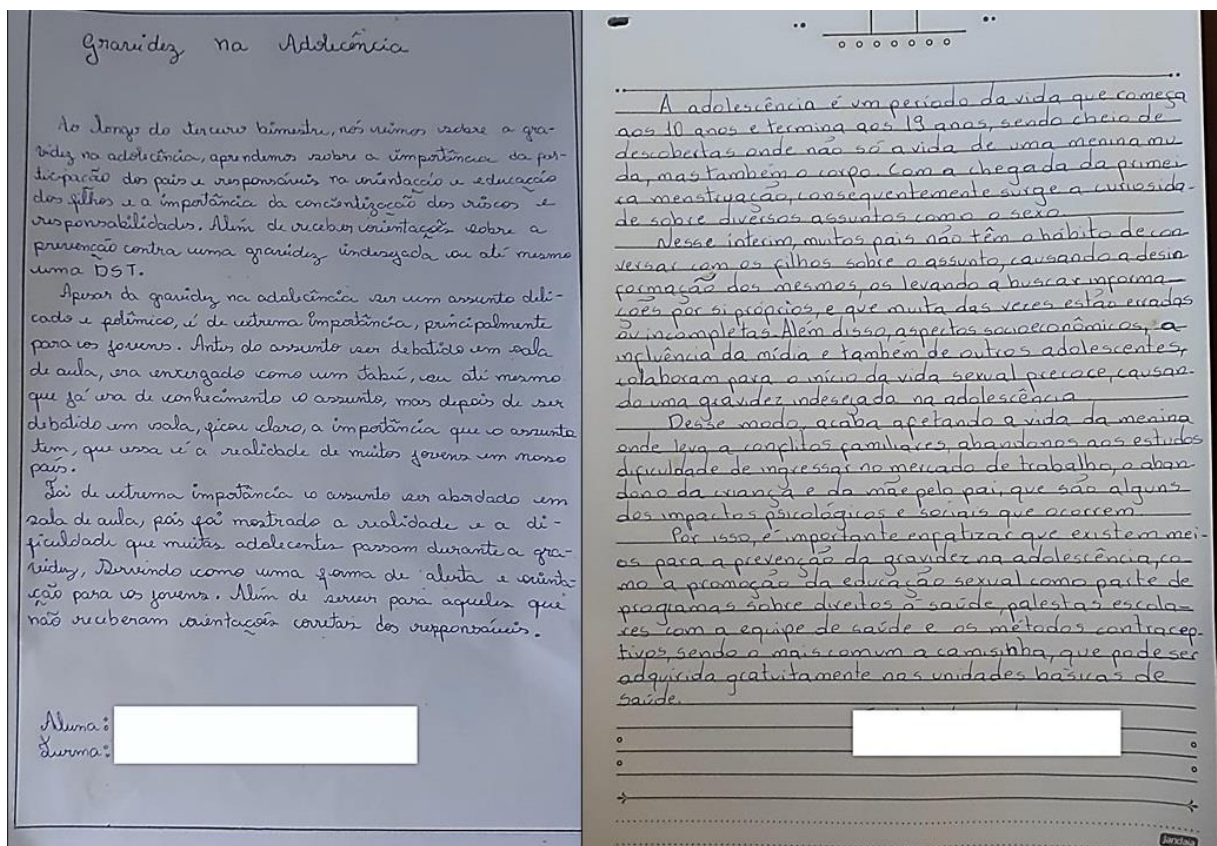 Gravidez na Adolecência
Ao longo do terceiro bimestre, nós vimos sobre a gra-
videz na adolecência, aprendemos sobre a importância da par-
ticipação dos pais e responsáveis na orientação e educação
dos filhos e a importância da concientização dos riscos e
responsabilidades. Além de receber orientação sobre a
prevenção contra uma gravidez indesejada ou até mesmo
uma DST.
Apesar da gravidez na adolecência ser um assunto deli-
cado e polêmico, é de extrema importância, principalmente
para os jovens. Antes do assunto ser debatido em sala
de aula, era enxergado como um tabú, ou até mesmo
que já era de conhecimento o assunto, mas depois de ser
debatido em sala, ficou claro, a importância que o assunto
tem, que essa é a realidade de muitos jovens em nosso
país.
Foi de extrema importância o assunto ser abordado em
sala de aula, pois foi mostrado a realidade e a di-
ficuldade que muitas adolecentes passam durante a gra-
videz, Servindo como uma forma de alerta e orienta-
ção para os jovens. Além de servir para aqueles que
não receberam orientações corretas dos responsáveis.
Aluna:
Turma:
A adolescência é um período da vida que começa
aos 10 anos e termina aos 19 anos, sendo cheio de
descobertas onde não só a vida de uma menina mu
da, mas também o corpo. Com a chegada da primei
ra menstruação, consequentemente surge a curiosida-
de sobre diversos assuntos como o sexo.
Nesse interim, muitos pais não têm o hábito de con
versar com os filhos sobre o assunto, causando a desin
formação dos mesmos, os levando a buscar informa-
ções por si próprios, e que muita das vezes estão erradas
ou incompletas. Além disso, aspectos socioeconômicos, a
influência da mídia e também de outros adolescentes,
colaboram para o início da vida sexual precoce, causan-
do uma gravidez indesejada na adolescência.
Desse modo, acaba afetando a vida da menina
onde leva a conflitos familiares, abandonos aos estudos
dificuldade de ingressar no mercado de trabalho, o aban
dono da criança e da mãe pelo pai, que são alguns
dos impactos psicológicos e sociais que ocorrem
Por isso, é importante enfatizar que existem mei-
os para a prevenção da gravidez na adolescência, co-
mo a promoção da educação sexual como parte de
programas sobre direitos à saúde, palestas escola-
res com a equipe de saúde e os métodos contracep-
tivos, sendo o mais comum a camisinha, que pode ser
adquirida gratuitamente nas unidades básicas de
saúde.
jandaia